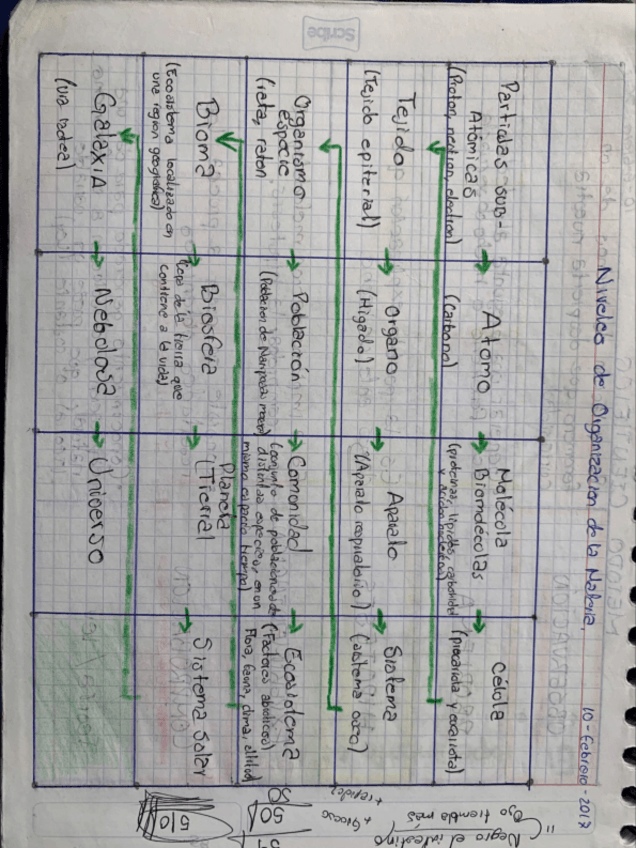 Niveles de Organización de la Materia.
10-Febrero-2017
Particulas SUB-
Atómicas
(Proton, neutron, electron)
Atomo
(Carbono)
Molécula
Biomolécolas
(proteinas, lipidos, carbohidratos
y ácidos nucleicos)
Célula
(procariota y eucariota)
Tejido
(Tejido epiterial)
Organo
(Higado)
Aparato
(Aparato respiratorio)
Sistema
(sistema oseo)
Organismo
especie
(rata, raton
Población
(Poblacion de Mariposas
Comunidad
(conjunto de poblaciones de
distintas especies, en un
mismo espacio tiempo)
Ecosistema
(Factores abioticos)
Flora, fauna, clima,
Bioma
(Ecosistema localizado en
una region geografica)
Biosfera
(capa de la tierra que
contiene a la vida)
Planeta
(Tierra)
Sistema Solar
Galaxia
(via lactea)
Nebolosa
Universo
Negro el intestino
Ojo tiembla más
+ Grueso
+ rapidez
50
510
Scribe